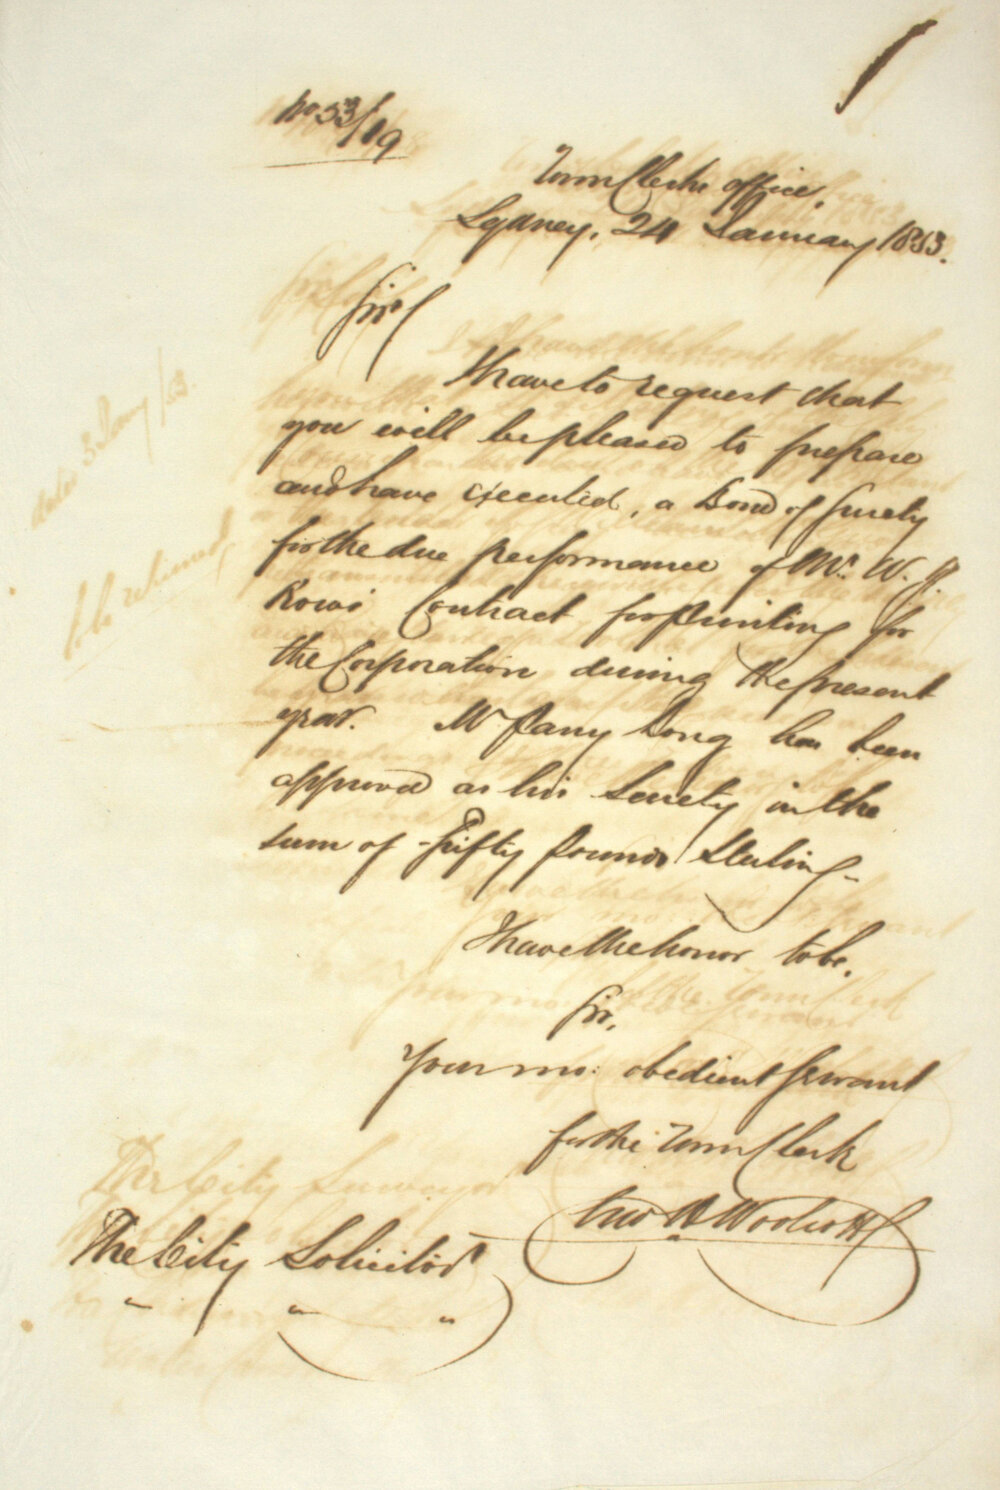 No 53/19
Town Clerks office,
Sydney, 24 January 1853.
Sir
I have to request that
you will be pleased to prepare
and have executed, a Bond of Surety
for the due performance of Mr. W.
Contract for printing for
the Corporation during the present
year. Mr Long has been
approved as his Surety in the
sum of Fifty Pounds Sterling-
I have the honor to be,
Sir,
Your mo: obedient Servant
for the Town Clerk
Woolcott
The City Solicitor
" " "